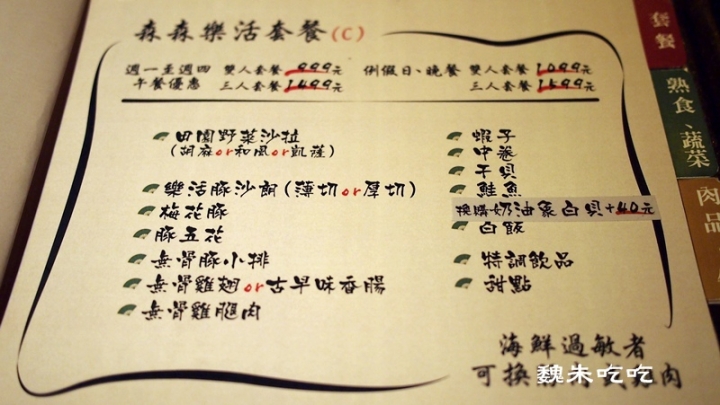 森森樂活套餐(C)
週一至週四 雙人套餐 999元 例假日、晚餐 雙人套餐 1099元
午餐優惠 三人套餐 1499元 三人套餐 1599元
田園野菜沙拉
(胡麻or和風or凱薩)
樂活豚沙朗(薄切or厚切)
梅花豚
豚五花
無骨豚小排
無骨雞翅or古早味香腸
無骨雞腿肉
蝦子
中卷
干貝
鮭魚
換購奶油象白貝+40元
白飯
特調飲品
甜點
海鮮過敏者
可換
肉
魏朱吃吃
套餐
熟食、蔬菜
肉品